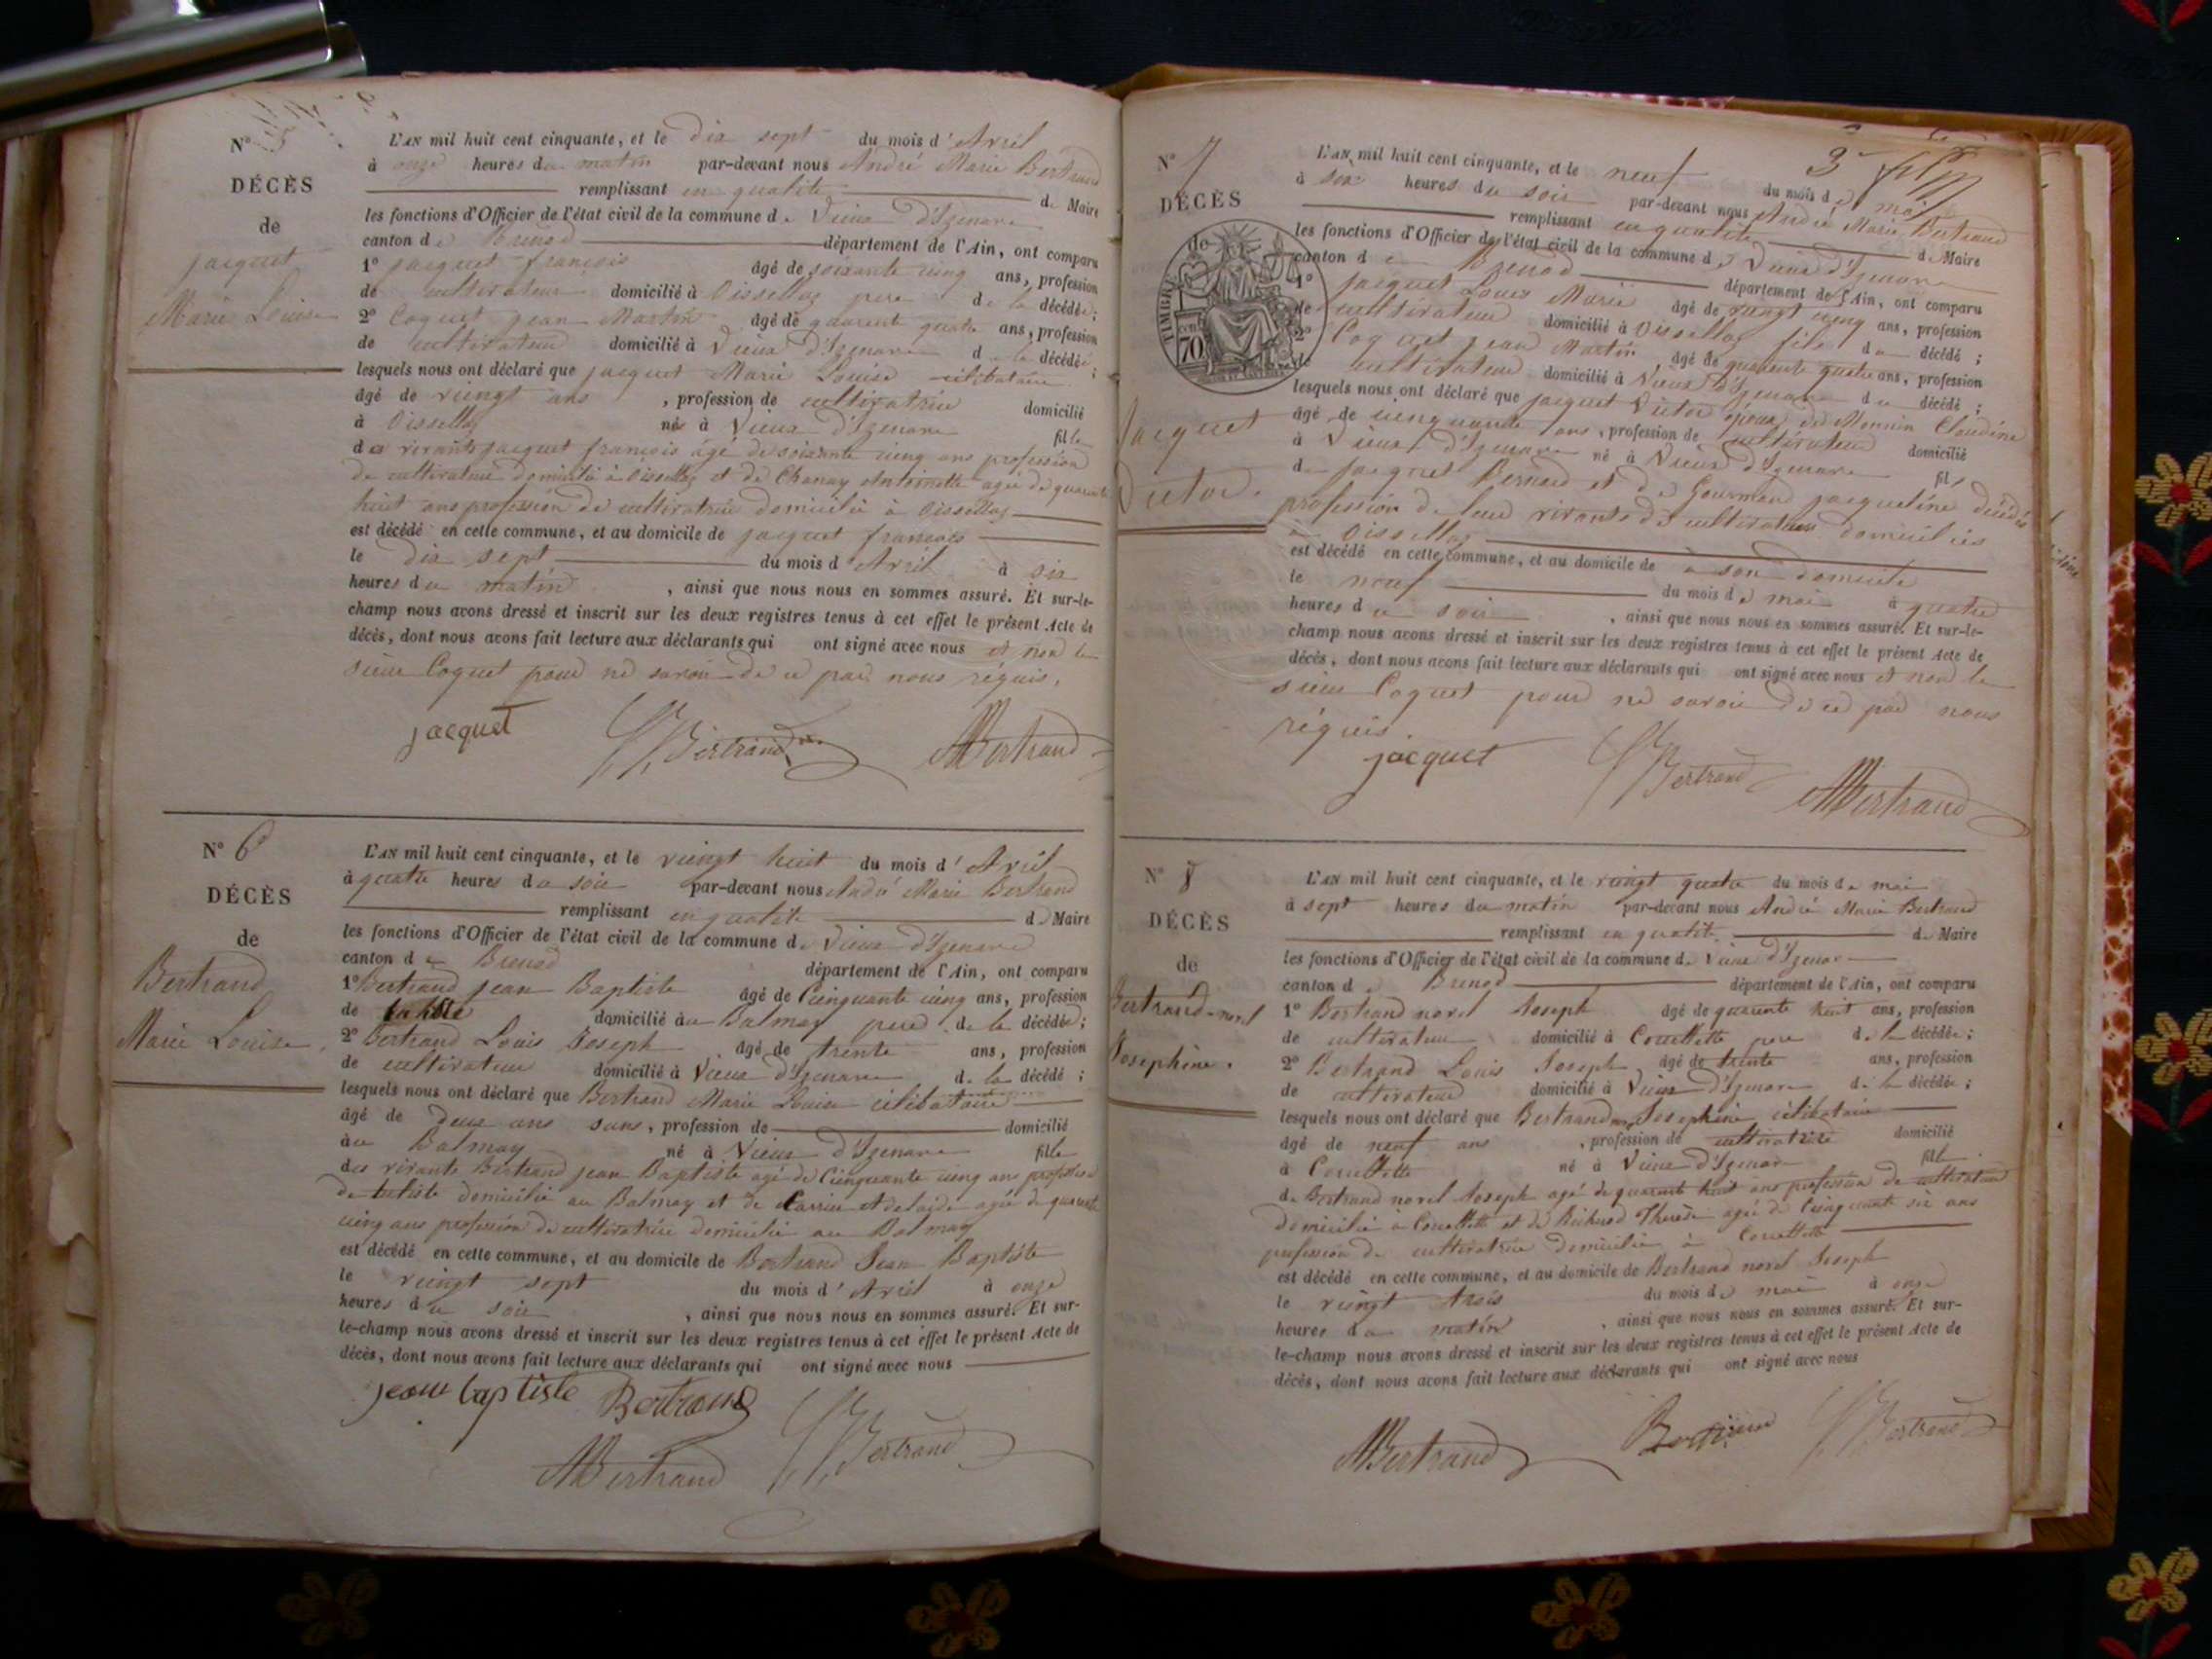 N° 5
DÉCÈS
de
jacquet
Marie Louise
L'AN mil huit cent cinquante, et le dix sept du mois d'Avril
à onze heures du matin par-devant nous André Marie Bertrand
remplissant en qualité de Maire
les fonctions d'Officier de l'état civil de la commune de Vieux d'Izenave
canton de Brenod département de l'Ain, ont comparu
1° jacquet françois âgé de soixante cinq ans, profession
de cultivateur domicilié à Oissellaz pere de la décédée;
2° Coquet jean Martin âgé de quarente quatre ans, profession
de cultivateur domicilié à Vieux d'Izenave de la décédée;
lesquels nous ont déclaré que jacquet Marie Louise célibataire
âgé de vingt ans, profession de cultivatrice domicilié
à Oissellaz né à Vieux d'Izenave fille
des vivants jacquet françois âgé de soixante cinq ans profession
de cultivateur domicilié à Oissellaz et de Chanay Antoinette agée de quarente
huit ans profession de cultivatrice domicilié à Oissellaz
est décédé en cette commune, et au domicile de jacquet françois
le dix sept du mois d'Avril à six
heures du matin, ainsi que nous nous en sommes assuré. Et sur-le-
champ nous avons dressé et inscrit sur les deux registres tenus à cet effet le présent Acte de
décès, dont nous avons fait lecture aux déclarants qui ont signé avec nous et non le
sieur Coquet pour ne savoir de ce par nous réquis.
jacquet Bertrand AMBertrand
N° 6
DÉCÈS
de
Bertrand
Marie Louise
L'AN mil huit cent cinquante, et le vingt huit du mois d'Avril
à quatre heures du soir par-devant nous André Marie Bertrand
remplissant en qualité de Maire
les fonctions d'Officier de l'état civil de la commune de Vieux d'Izenave
canton de Brenod département de l'Ain, ont comparu
1° Bertrand jean Baptiste âgé de Cinquante cinq ans, profession
de domicilié au Balmay pere de la décédée;
2° Bertrand Louis Joseph âgé de trente ans, profession
de cultivateur domicilié à Vieux d'Izenave de la décédé;
lesquels nous ont déclaré que Bertrand Marie Louise célibataire
âgé de deux ans sans, profession de domicilié
au Balmay né à Vieux d'Izenave fille
des vivants Bertrand jean Baptiste agé de Cinquante cinq ans profession
de domicilié au Balmay et de Carrier Adelaide agée de quarente
cinq ans profession de cultivatrice domicilié au Balmay
est décédé en cette commune, et au domicile de Bertrand Jean Baptiste
le vingt sept du mois d'Avril à onze
heures du soir, ainsi que nous nous en sommes assuré. Et sur-
le-champ nous avons dressé et inscrit sur les deux registres tenus à cet effet le présent Acte de
décès, dont nous avons fait lecture aux déclarants qui ont signé avec nous
jean baptiste Bertrand
AMBertrand Bertrand
N° 7
DÉCÈS
de
TIMBRE
70
jacquet
Victor.
L'AN mil huit cent cinquante, et le neuf du mois de mai
à six heures du soir par-devant nous André Marie Bertrand
remplissant en qualité de Maire
les fonctions d'Officier de l'état civil de la commune de Vieux d'Izenave
canton de Brenod département de l'Ain, ont comparu
1° jacquet Louis Marie âgé de vingt cinq ans, profession
de cultivateur domicilié à Oissellaz fils du décédé;
2° Coquet jean Martin, âgé de quarente quatre ans, profession
de cultivateur domicilié à Vieux d'Izenave du décédé;
lesquels nous ont déclaré que jacquet Victor époux de Monnin Claudine
âgé de cinquante ans, profession de cultivateur domicilié
à Vieux d'Izenave né à Vieux d'Izenave fils
de jacquet Bernard et de Gourmand jacqueline décédés
profession de leur vivants de cultivateurs domiciliés
à Oissellaz
est décédé en cette commune, et au domicile de à son domicile
le neuf du mois de mai à quatre
heures du soir, ainsi que nous nous en sommes assuré. Et sur-le-
champ nous avons dressé et inscrit sur les deux registres tenus à cet effet le présent Acte de
décès, dont nous avons fait lecture aux déclarants qui ont signé avec nous et non le
sieur Coquet pour ne savoir de ce par nous
réquis
jacquet Bertrand AMBertrand
N° 8
DÉCÈS
de
Bertrand-norel
Josephine.
L'AN mil huit cent cinquante, et le vingt quatre du mois de mai
à sept heures du matin par-devant nous André Marie Bertrand
remplissant en qualité de Maire
les fonctions d'Officier de l'état civil de la commune de Vieux d'Izenave
canton de Brenod département de l'Ain, ont comparu
1° Bertrand norel Joseph âgé de quarente huit ans, profession
de cultivateur domicilié à Couillette pere de la décédée;
2° Bertrand Louis Joseph âgé de trente ans, profession
de cultivateur domicilié à Vieux d'Izenave de la décédée;
lesquels nous ont déclaré que Bertrand Josephine célibataire
âgé de neuf ans, profession de cultivatrice domicilié
à Couillette né à Vieux d'Izenave fille
de Bertrand norel Joseph agé de quarente huit ans profession de cultivateur
domicilié à Couillette et de Richerod Therèse agée de Cinquante six ans
profession de cultivatrice domicilié à Couillette
est décédé en cette commune, et au domicile de Bertrand norel Joseph
le vingt trois du mois de mai à onze
heures du matin, ainsi que nous nous en sommes assuré. Et sur-
le-champ nous avons dressé et inscrit sur les deux registres tenus à cet effet le présent Acte de
décès, dont nous avons fait lecture aux déclarants qui ont signé avec nous
AMBertrand Bertrand Bertrand